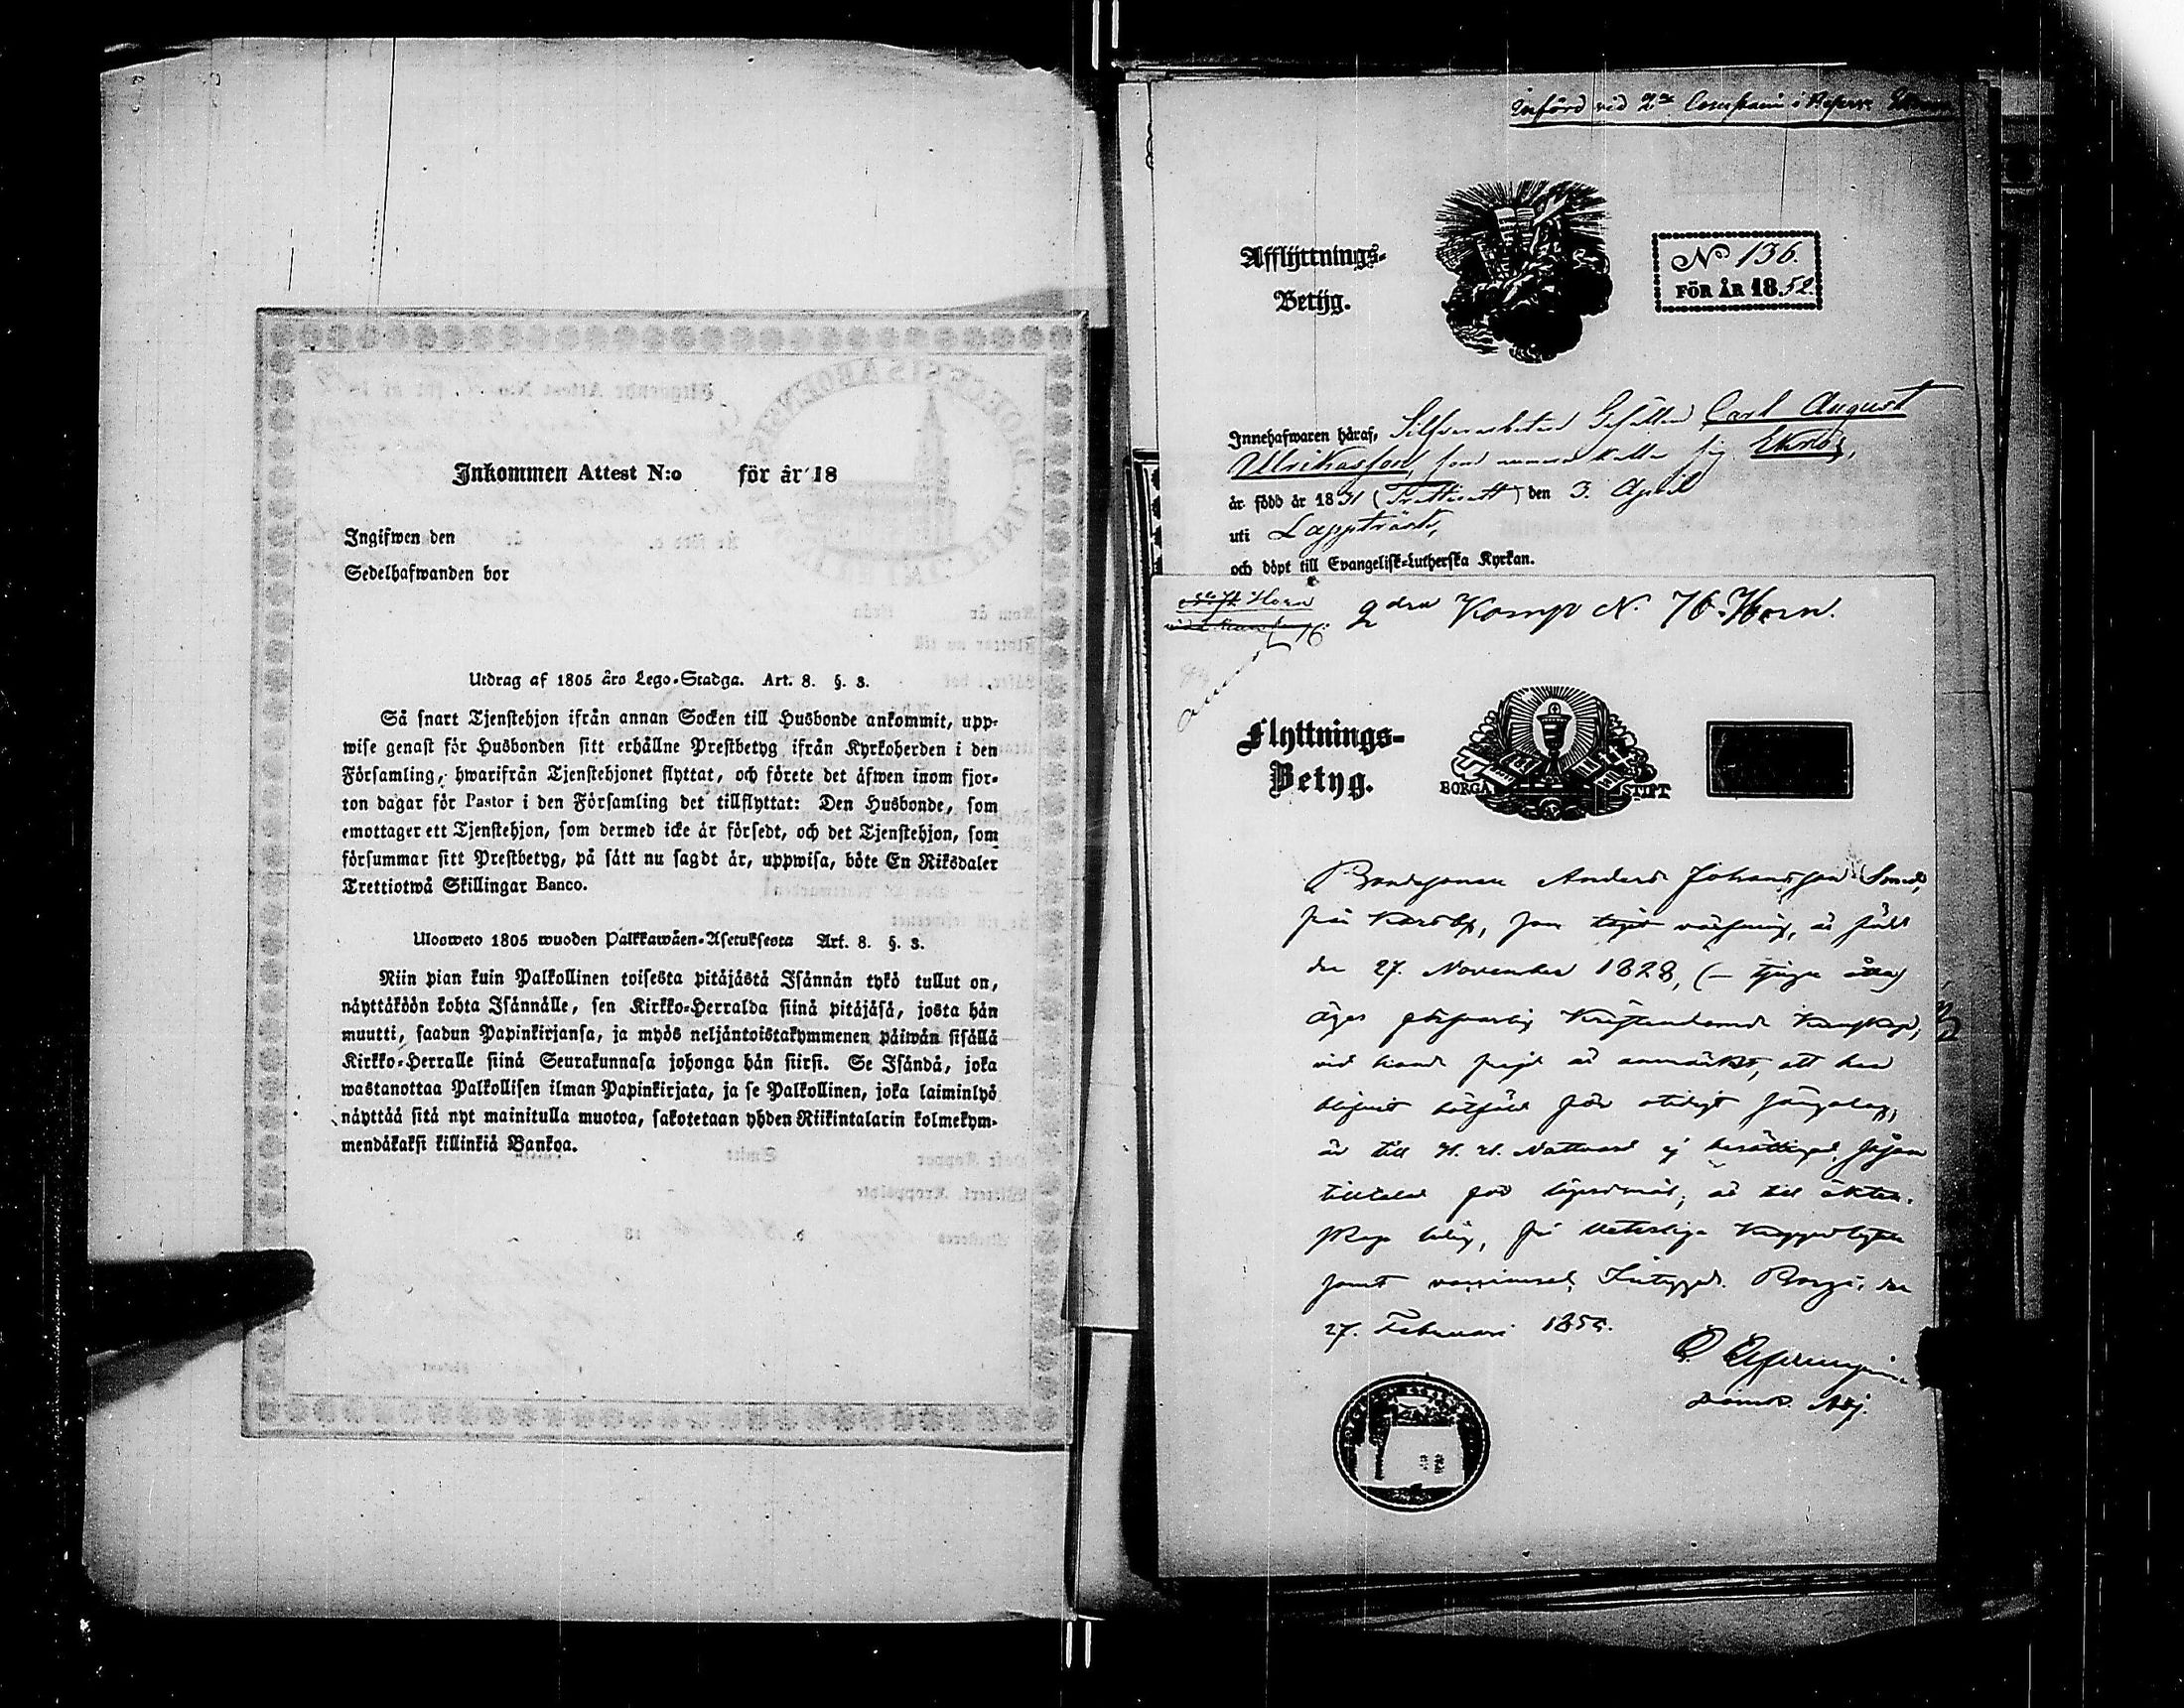 Inkommen Attest N:o för år 18
Ingifwen den
Sedelhafwanden bor
Utdrag af 1805 års Lego-Stadga. Art. 8. §. 3.
Så snart Tjenstehjon ifrån annan Socken till Husbonde ankommit, upp-
wise genast för Husbonden sitt erhållne Prestbetyg ifrån Kyrkoherden i den
Församling, hwarifrån Tjenstehjonet flyttat, och förete det äfwen inom fjor-
ton dagar för Pastor i den Församling det tillflyttat: Den Husbonde, som
emottager ett Tjenstehjon, som dermed icke är försedt, och det Tjenstehjon, som
försummar sitt Prestbetyg, på sätt nu sagdt är, uppwisa, böte En Riksdaler
Trettiotwå Skillingar Banco.
Ulosweto 1805 wuoden Palkkawäen-Asetuksesta Art. 8. §. 3.
Niin pian kuin Palkollinen toisesta pitäjästä Isännän tykö tullut on,
näyttäköön kohta Isännälle, sen Kirkko-Herralda siinä pitäjäsä, josta hän
muutti, saadun Papinkirjansa, ja myös neljäntoistakymmenen päiwän sisällä
Kirkko-Herralle siinä Seurakunnasa johonga hän siirsi. Se Isändä, joka
wastanottaa Palkollisen ilman Papinkirjata, ja se Palkollinen, joka laiminlyö
näyttää sitä nyt mainitulla muotoa, sakotetaan yhden Riikintalarin kolmekym-
mendäkaksi killinkiä Bankoa.
Införd vid 2a Compani i
Afflyttnings-
Betyg.
No 136.
FÖR ÅR 1852
Innehafwaren häraf, Silfverarbetare Gesällen Carl August
Ulrikasson, som numera kallar sig
är född år 1831 (Trettioett) den 3. April
uti Lappträsk,
och döpt till Evangelisk-Lutherska Kyrkan.
Horn
76
2dra Komp N. 76. Horn.
Flyttnings-
Betyg.
BORGÅ STIFT
Bondesonen Anders Johansson
från Karsby, som tagit värfning, är född
den 27. November 1828, (– tjugu åtta)
äger Kristendoms kunskap,
vid hans frejd är anmärkt, att han
blifvit bötfäld för otidigt sängelag,
är till H. H. Nattvard ej berättigad, såsom
tilltalad för lägersmål; är till äkten-
skap ledig, 
samt vaccinerad, Intygas. Borgå, den
27. Februari 185
Domk. Adj.